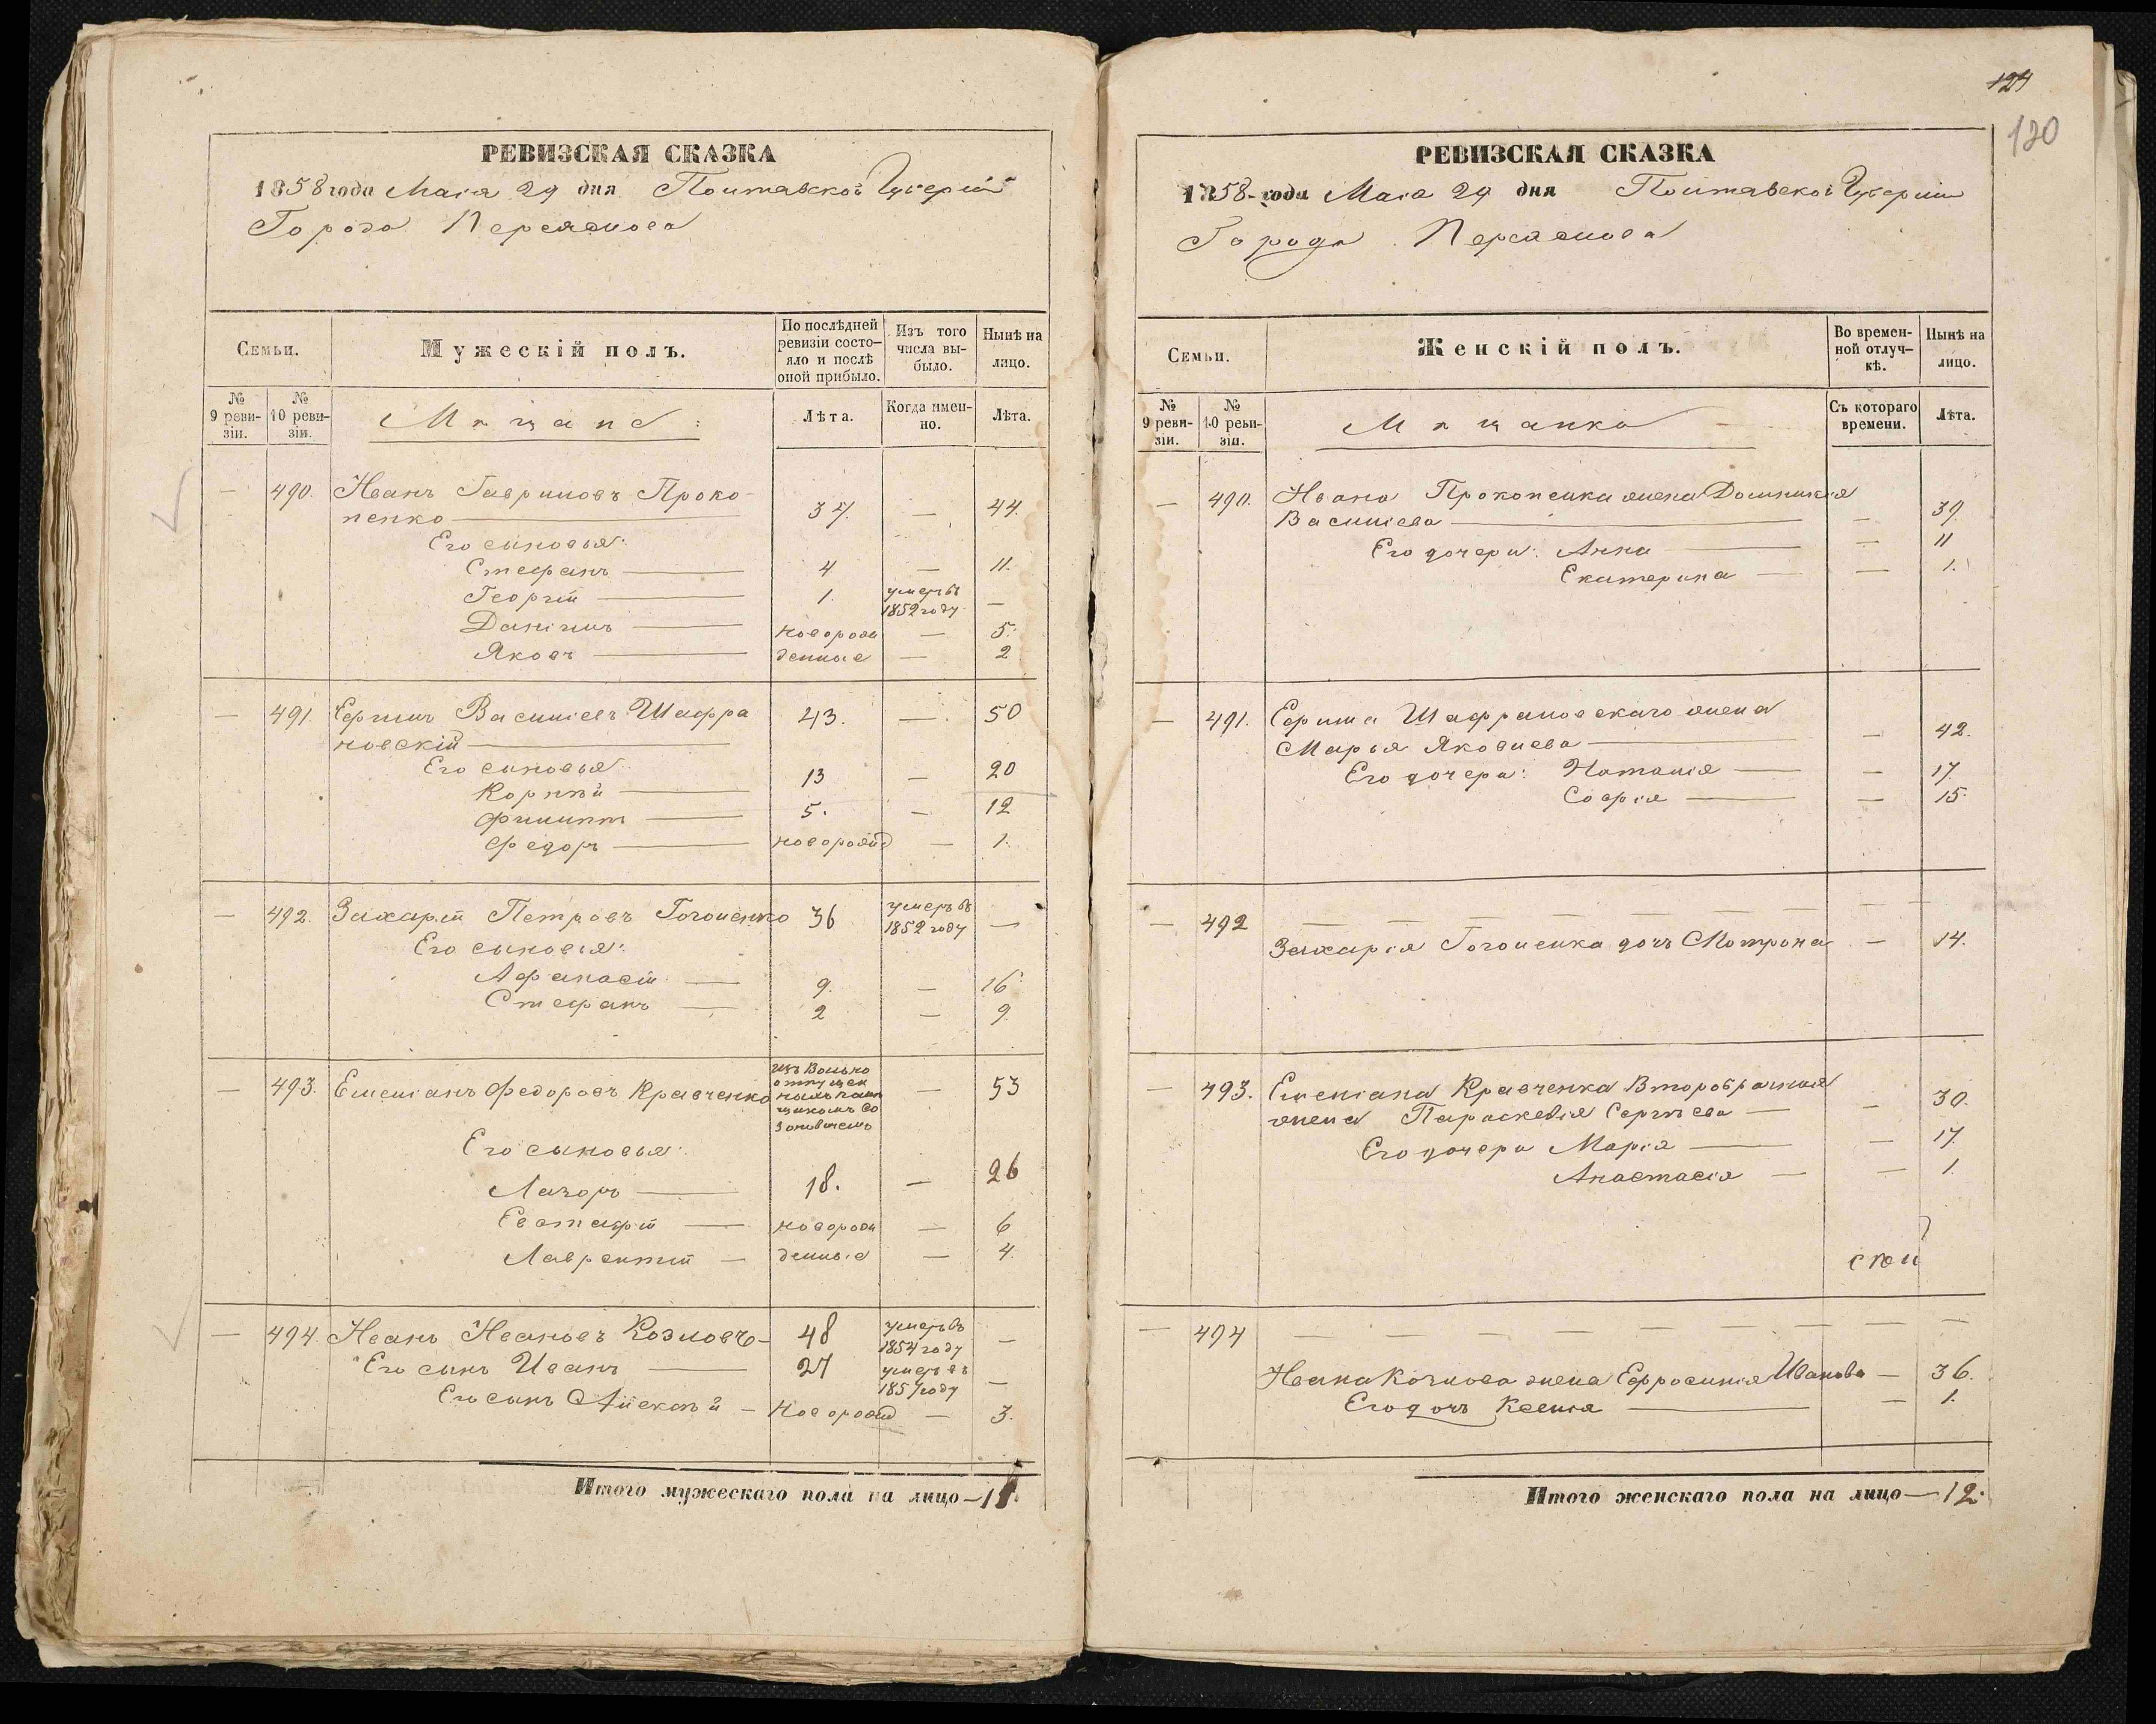 РЕВИЗСКАЯ СКАЗКА
1858 года Маія 29 дня Полтавской Губерніи
Города Переяслова
Семьи.
Мужескій полъ.
По послѣдней ревизіи состо-
яло и послѣ
оной прибыло.
Изъ того
числа вы-
было.
Нынѣ на
лицо.
№
9 реви-
зіи.
№
10 реви-
зіи.
Мѣщане:
Лѣта.
Когда имен-
но.
Лѣта.
— 490. Иванъ Гавриловъ Проко-
пенко — 37. — 44.
Его сыновья:
Стефанъ — 4 — 11.
Георгій — 1. умеръ въ 1852 году —
Даніилъ — новорож — 5.
Яковъ — денные — 2
— 491. Ефимъ Василіевъ Шафра 43. — 50
новскій —
Его сыновья
Корнѣй — 13 — 20
Филиппъ — 5. — 12
Федоръ — новорожд — 1.
— 492. Захарій Петровъ Гоголенко 36 умеръ въ 1852 году —
Его сыновья:
Афанасій — 9. — 16
Стефанъ — 2 — 9.
— 493. Емеліанъ Федоровъ Кравченко изъ Вольно
отпущен — 53
Его сыновья:
Лазоръ — 18. — 26
Евстафій — новорож — 6
Лаврентій — денные — 4.
— 494. Иванъ Ивановъ Козловъ — 48 умеръ въ 1854 году —
Его сынъ Иванъ — 27 умеръ въ 1857 году —
Его сынъ Алексѣй — новорожд — 3.
Итого мужескаго пола на лицо —
124
120
РЕВИЗСКАЯ СКАЗКА
1858 года Маія 29 дня Полтавской Губерніи
Города Переяслова
Семьи.
Женскій полъ.
Во времен-
ной отлуч-
кѣ.
Нынѣ на
лицо.
№
9 реви-
зіи.
№
10 реви-
зіи.
Мѣщанки
Съ котораго
времени.
Лѣта.
— 490. Ивана Прокопенка жена Домникія
Василіева — — 39.
Его дочери: Анна — — 11
Екатерина — — 1.
— 491. Ефима Шафрановскаго жена
Марья Яковлева — — 42.
Его дочери: Наталія — — 17.
Софія — — 15.
— 492 — — — — — — — —
Захарія Гоголенка дочь Мотрона — 14.
— 493. Емеліана Кравченка Второбрачная
жена Параскевія Сергѣева — — 30.
Его дочери Марія — — 17.
Анастасія — — 1.
— 494 — — — — — — — —
Ивана Козлова жена Ефросинія Иванова — 36.
Его дочь Ксенія — — 1.
Итого женскаго пола на лицо — 12.